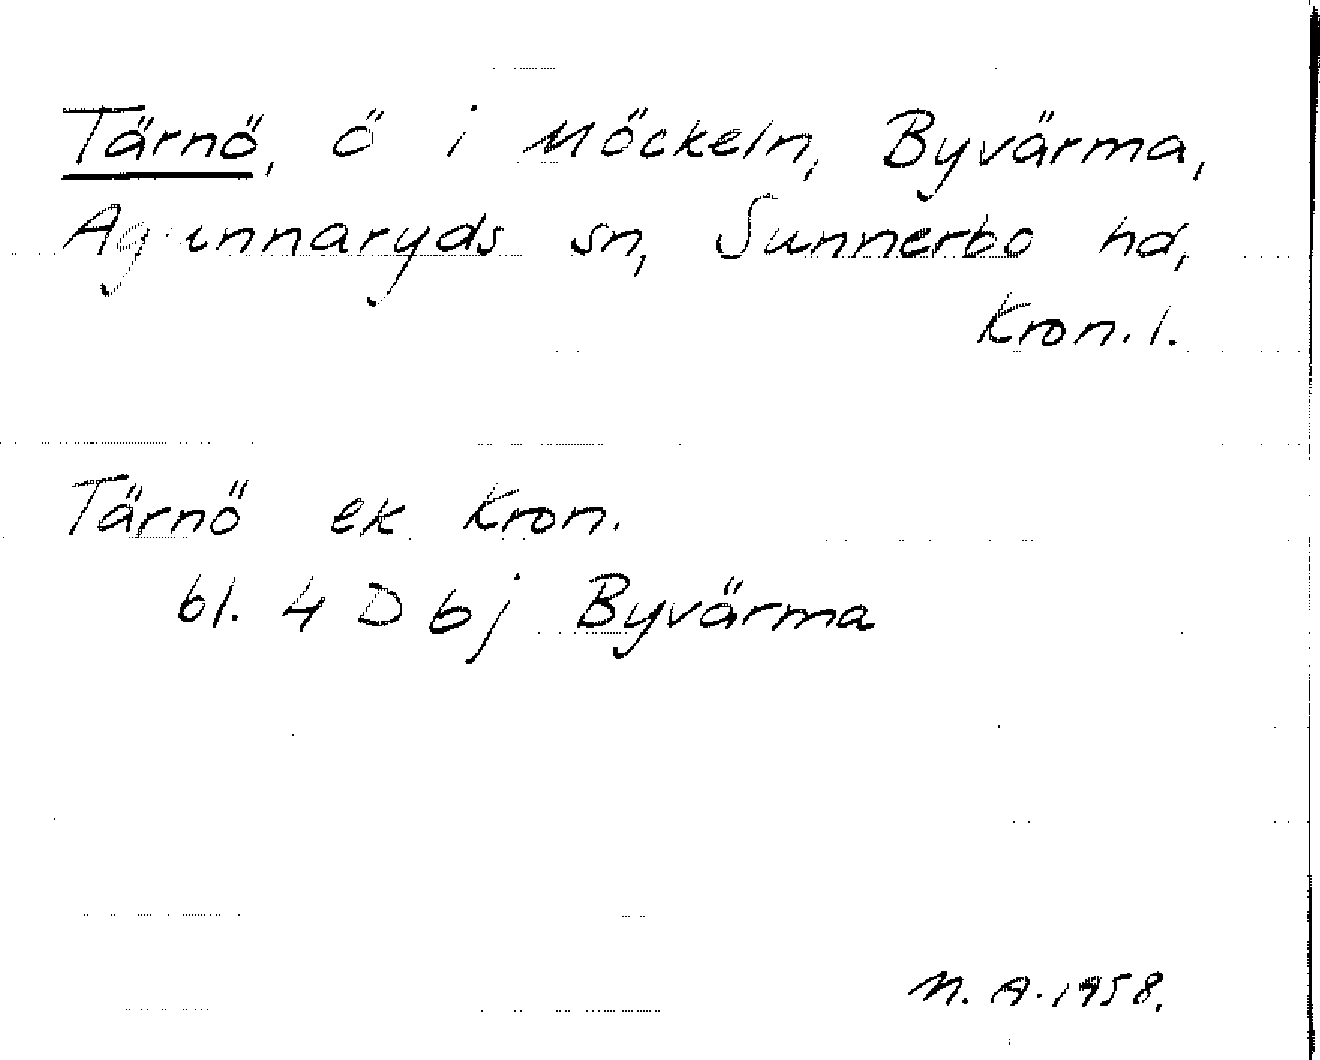 Tärnö, ö i Möckeln, Byvärma,
Agunnaryds sn, Sunnerbo hd,
Kron. l.
Tärnö ek Kron.
bl. 4 D bj Byvärma
N. A. 1958.